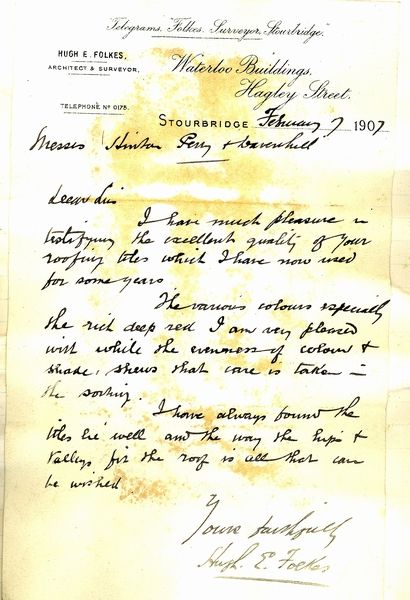 Telegrams, "Folkes, Surveyor, Stourbridge."
HUGH E. FOLKES,
ARCHITECT & SURVEYOR,
TELEPHONE Nº 0175.
Waterloo Buildings,
Hagley Street,
STOURBRIDGE February 7 1907
Messrs Hinton Perry & Davenhill
Dear Sirs
I have much pleasure in
testifying the excellent quality of your
roofing tiles which I have now used
for some years
The various colours especially
the rich deep red I am very pleased
with while the evenness of colour &
shade, shews that care is taken in
the sorting.
I have always found the
tiles lie well and the way the hips &
valleys fit the roof is all that can
be wished
Yours faithfully
Hugh. E. Folkes